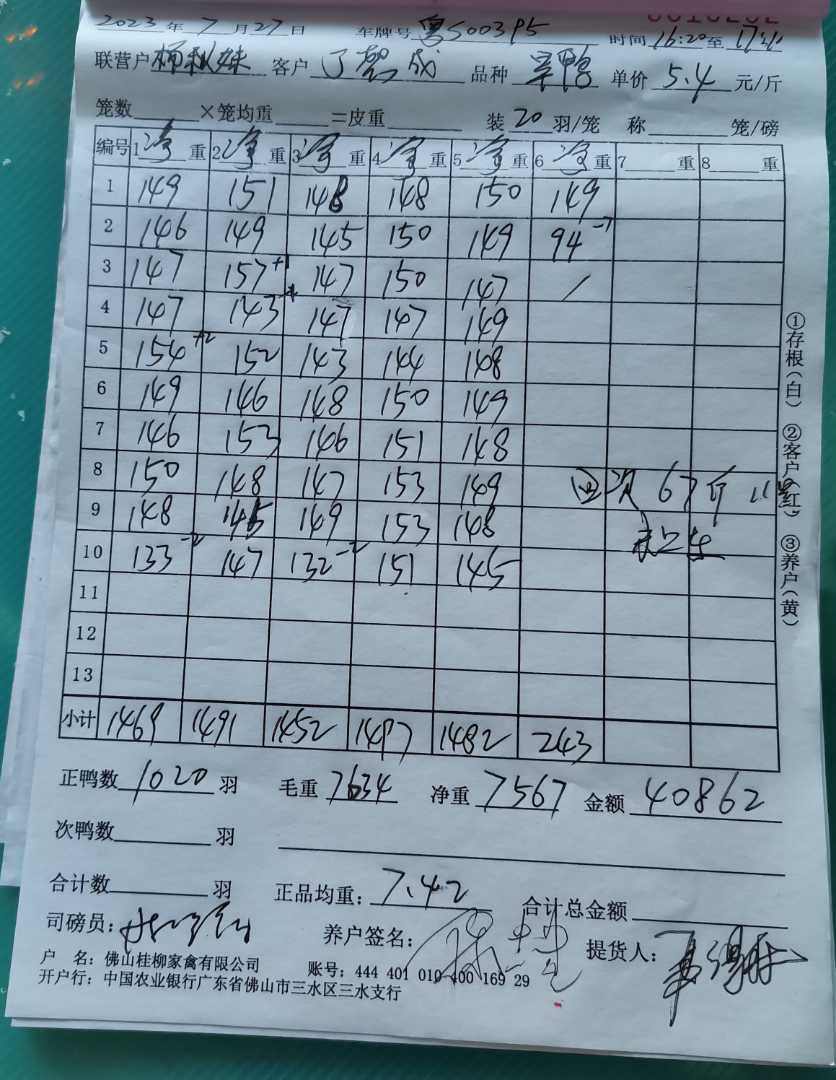 2023年7月27日 车牌号 粤S003P5 时间 16:20至17:
联营户 杨秋妹 客户 丁贺成 品种 单价 5.4 元/斤
笼数 ×笼均重 =皮重 装 20 羽/笼 称 笼/磅
编号 1净重 2净重 3净重 4净重 5净重 6净重 7 重 8 重
1 149 151 148 148 150 149
2 146 149 145 150 149 94-7
3 147 157+1 147 150 147 /
4 147 143 147 147 149
5 154+2 152 143 144 148
6 149 146 148 150 149
7 146 153 146 151 148
8 150 148 147 153 149
9 148 145 149 153 148
10 133-2 147 132-2 151 145
11
12
13
小计 1469 1491 1452 1497 1482 243
次 67斤
①存根(白) ②客户(红) ③养户(黄)
正鸭数 1020 羽 毛重 7634 净重 7567 金额 40862
次鸭数 羽
合计数 羽 正品均重: 7.42 合计总金额
司磅员: 养户签名: 提货人:
户 名: 佛山桂柳家禽有限公司 账号: 444 401 010 400 169 29
开户行: 中国农业银行广东省佛山市三水区三水支行